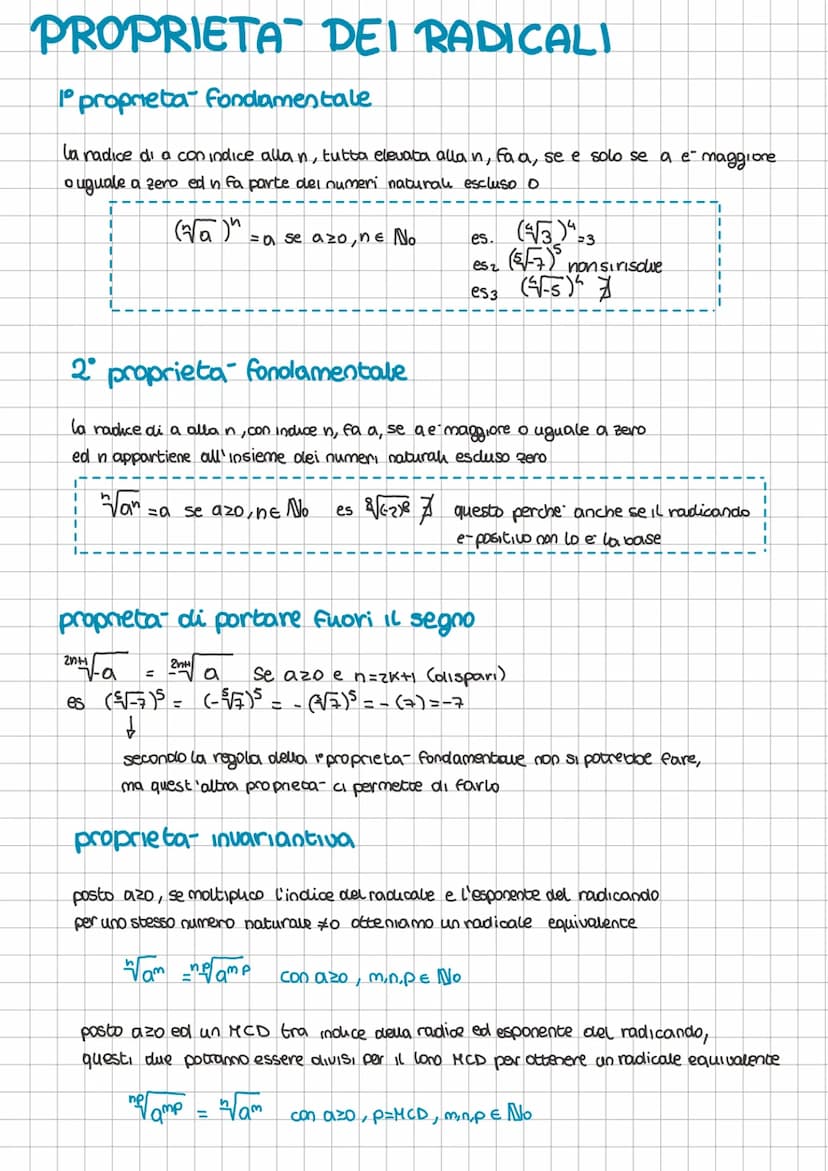 PROPRIETA- DEI RADICALI
1° proprieta- fondamentale
la radice di a con indice alla n, tutta elevata alla n, fa a, se e solo se a e- maggiore
o uguale a zero ed n fa parte dei numeri naturali escluso 0
(ⁿ√a)ⁿ = a se a≥0, n ∈ N₀ es. (⁴√3)⁴ = 3
es2 (⁵√-7)⁵ non si risolve
es3 (⁴√-5)⁴ ∄
2° proprieta- fondamentale
la radice di a alla n, con indice n, fa a, se a e- maggiore o uguale a zero
ed n appartiene all'insieme dei numeri naturali escluso zero
ⁿ√aⁿ = a se a≥0, n ∈ N₀ es ⁸√(-2)⁸ ∄ questo perche' anche se il radicando
e- positivo non lo e' la base
proprieta- di portare fuori il segno
²ⁿ⁺¹√-a = ²ⁿ⁺¹√a se a≥0 e n=2k+1 (dispari)
es (⁵√-7)⁵ = (-⁵√7)⁵ = - (⁵√7)⁵ = - (7) = -7
↓
secondo la regola della 1° proprieta- fondamentale non si potrebbe fare,
ma quest'altra proprieta- ci permette di farlo
proprieta- invariantiva
posto a≥0, se moltiplico l'indice del radicale e l'esponente del radicando
per uno stesso numero naturale ≠0 otteniamo un radicale equivalente
ⁿ√aᵐ = ⁿᵖ√aᵐᵖ con a≥0, m,n,p ∈ N₀
posto a≥0 ed un MCD tra indice della radice ed esponente del radicando,
questi due potranno essere divisi per il loro MCD per ottenere un radicale equivalente
ⁿᵖ√aᵐᵖ = ⁿ√aᵐ con a≥0, p=MCD, m,n,p ∈ N₀